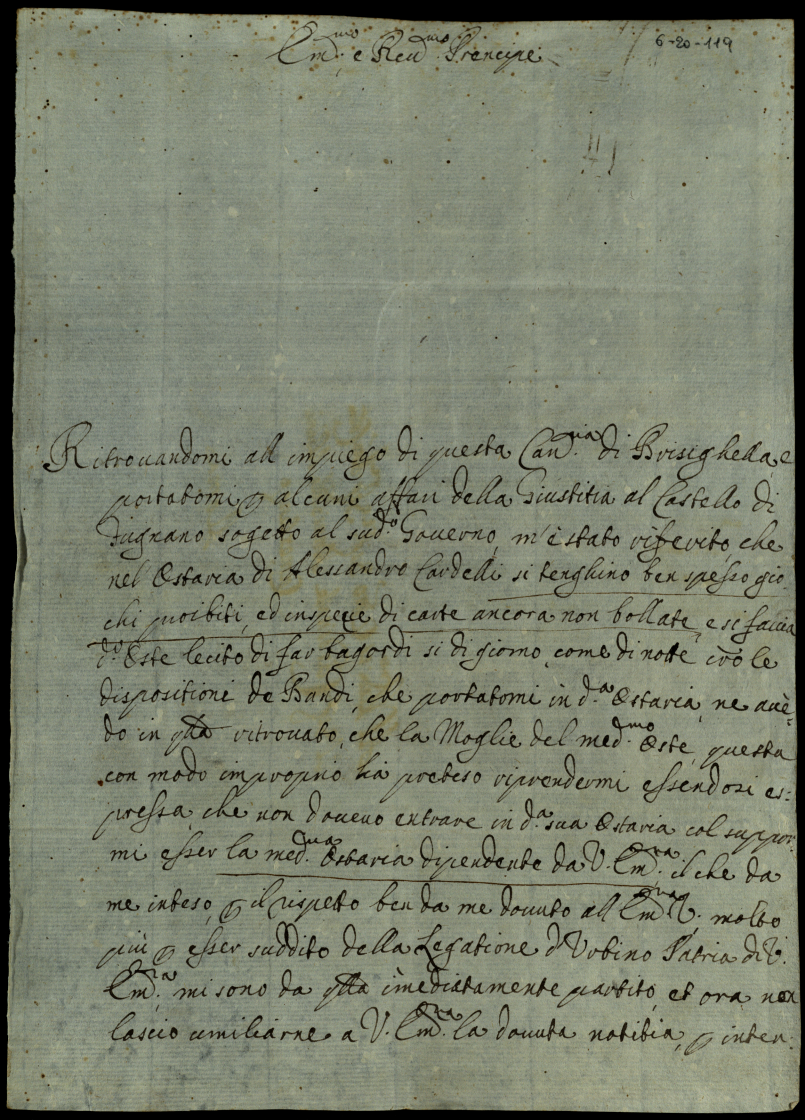 6-20-119
Em.mo e Reu.mo Prencipe
Ritrouandomi all impiego di questa Can.ria di Brisighella, e
portatomi p alcuni affari della Giustitia al Castello di
Fugnano sogetto al sud.o Gouerno, m'è stato riferito, che
nel' Ostaria di Alessandro Cardelli si tenghino ben spesso gio
chi proibiti, ed in specie di carte ancora non bollate, e si faccia
d.o Oste lecito di far bagordi si di giorno, come di notte crô le
dispositioni de Bandi, che portatomi in d.a Ostaria, ne auē-
do in qlla ritrouato, che la Moglie del med.mo Oste, questa
con modo improprio hà preteso riprendermi essendosi es-
pressa, che non doueuo entrare in d.a sua Ostaria col suppor
mi esser la med.ma Ostaria dipendente da V. Em.za il che da
me inteso, p il rispetto ben da me douuto all Em.za V. molto
più p esser suddito della Legatione d'Vrbino Patria di V.
Em.za, mi sono da qlla imediatamente partito, et ora non
lascio umiliarne a V. Em.za la douuta notitia, p inten